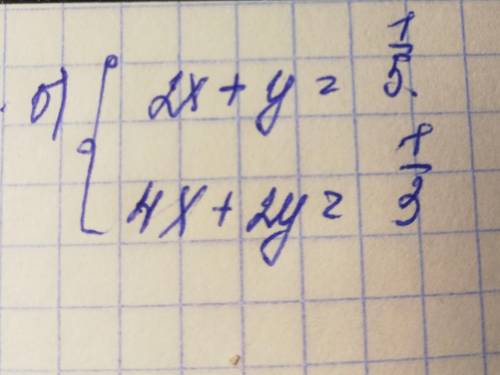 б) { 2x + y = 1/5
4x + 2y = 1/3